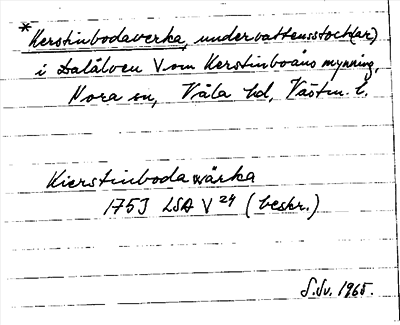 *Kerstinbodaverka, undervattensstock(ar)
i Dalälven V om Kerstinboåns mynning,
Nora sn, Våla hd, Västm. l.
Kierstinboda wärka
1753 LSA V 24 (beskr.)
S.Sv. 1965.